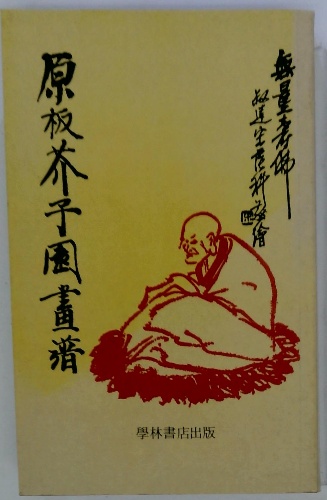 無量壽佛
原板芥子園畫譜
學林書店出版